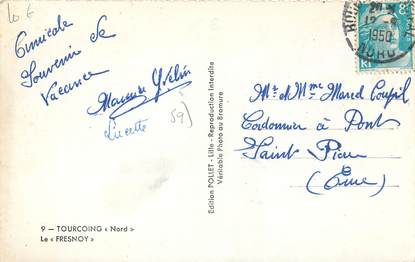 10 €
Amicale
Souvenir de
Vacance
Maurice Yvelin
Lucette
59)
Edition POLLET - Lille - Reproduction Interdite
Véritable Photo au Bromure
1950
NORD
Mr et Mme Marcel Coupil
Cordonnier à Pont
Saint Pierre
(Eure)
9 — TOURCOING « Nord »
Le « FRESNOY »